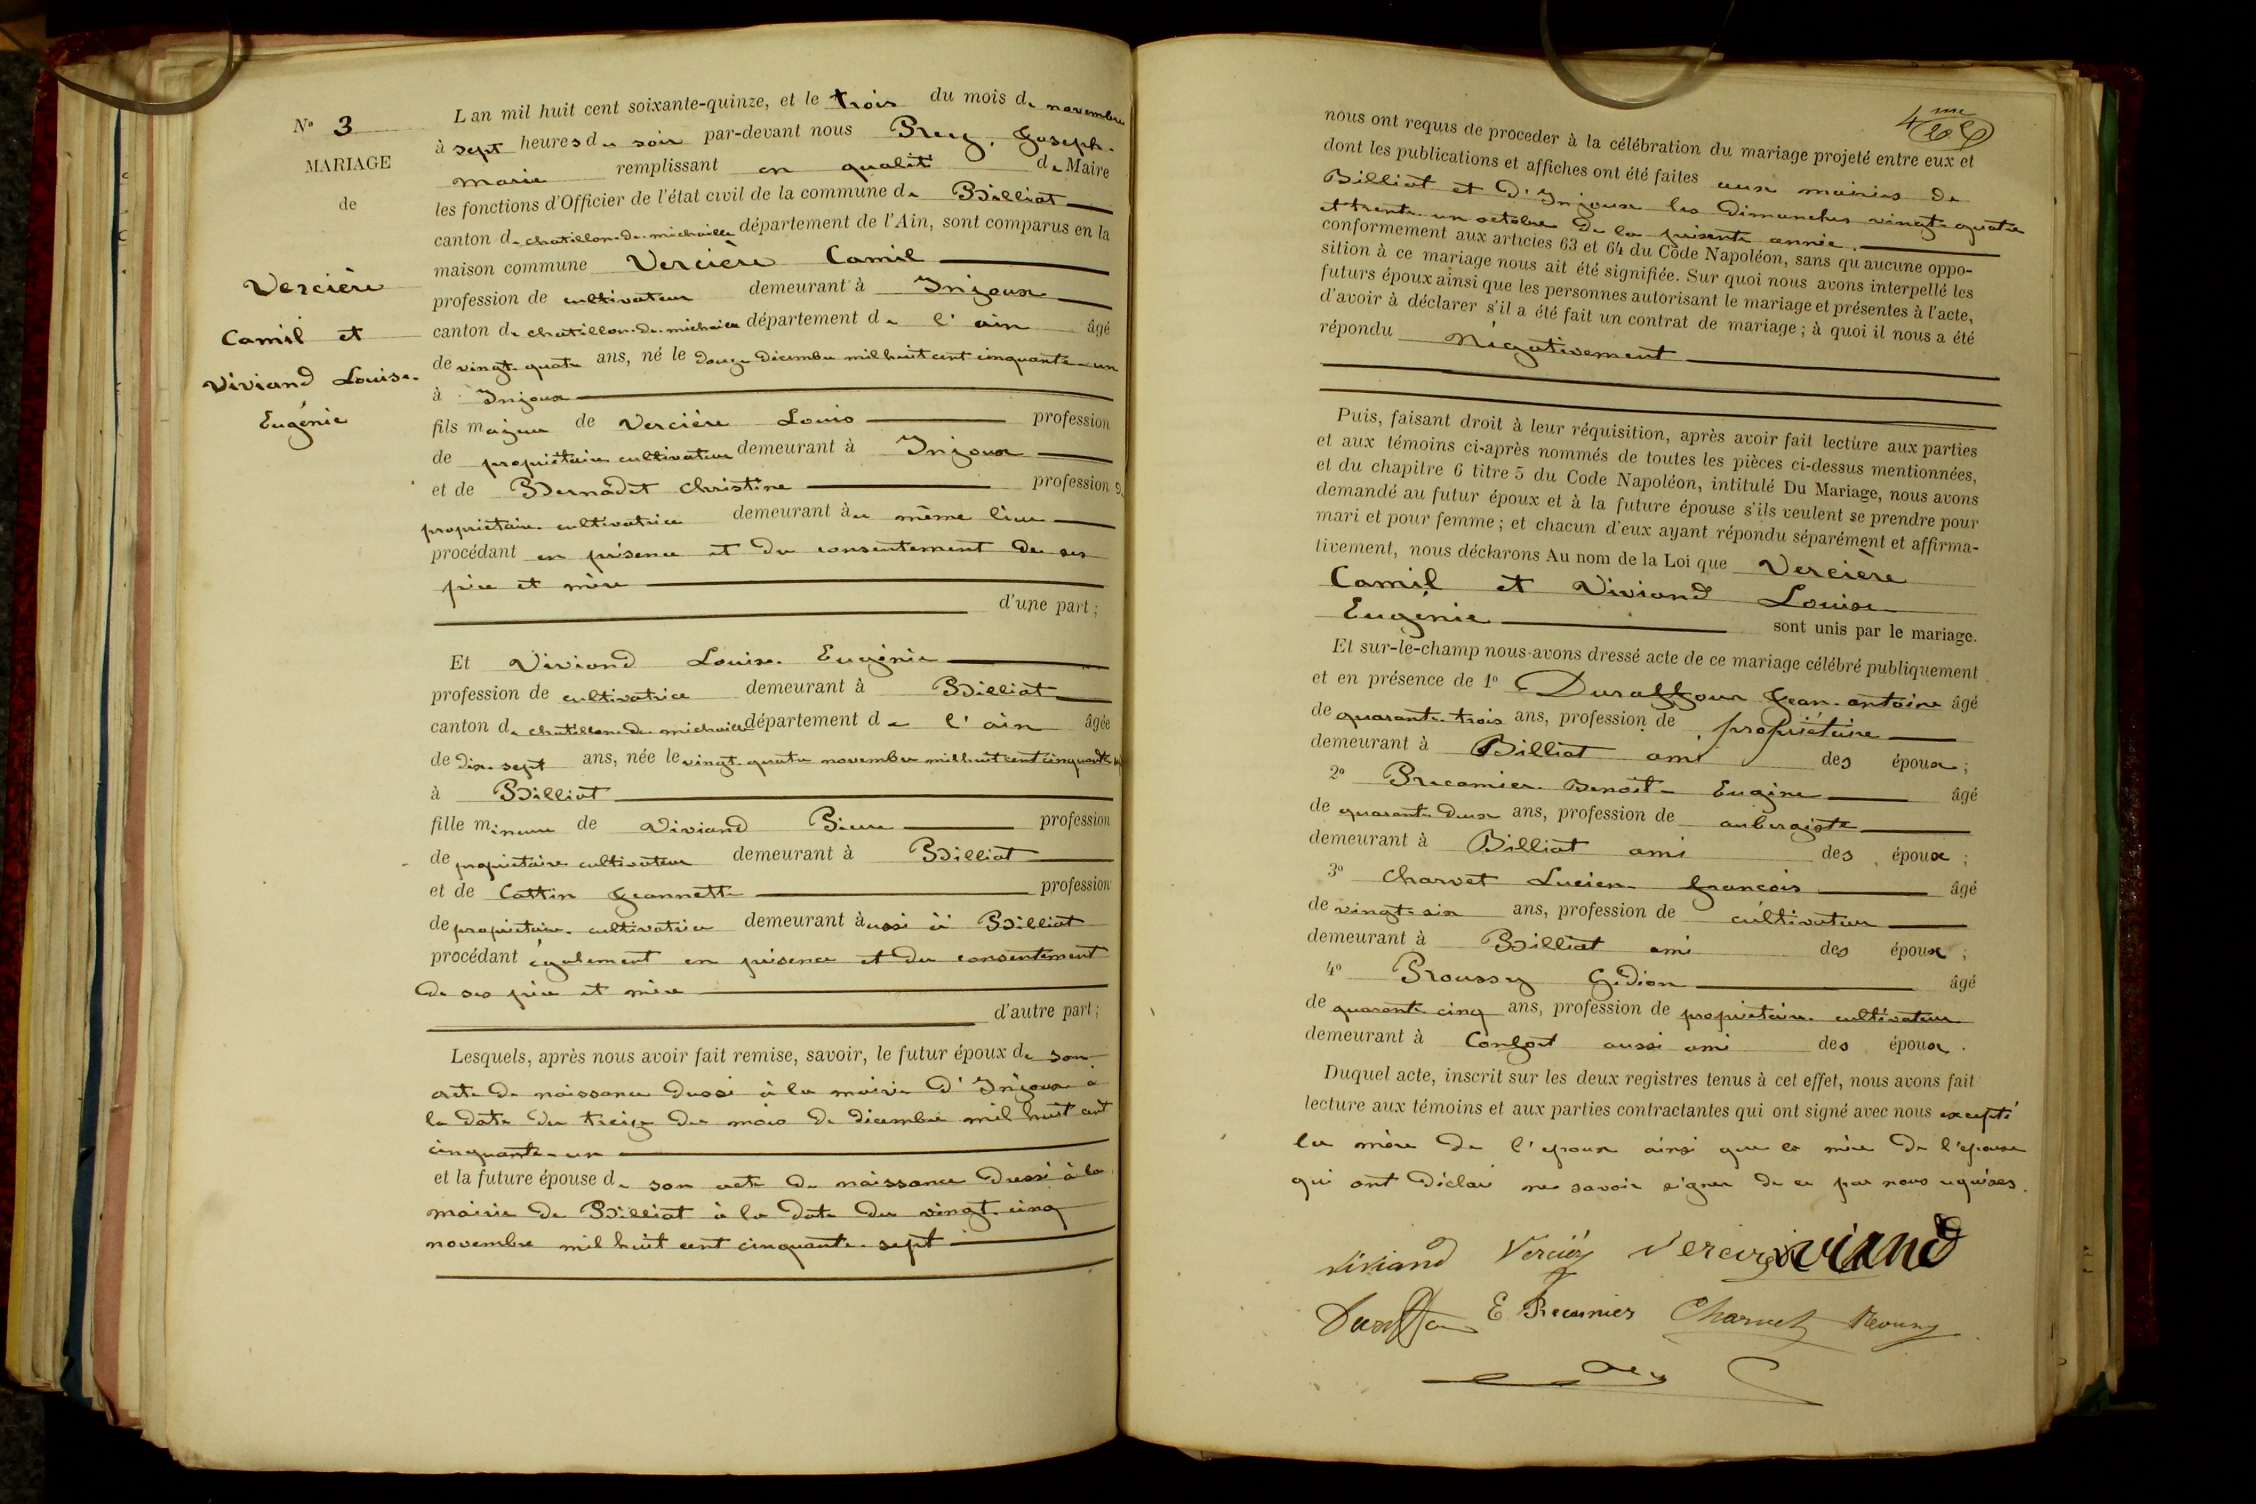 Nº 3
MARIAGE
de
Vercière
Camil et
Viviand Louise-
Eugénie
L an mil huit cent soixante-quinze, et le trois du mois de novembre
à sept heures du soir par-devant nous Joseph-
marie remplissant en qualité de Maire
les fonctions d'Officier de l'état civil de la commune de Billiat
canton de chatillon-de-michaille département de l'Ain, sont comparus en la
maison commune Vercière Camil
profession de cultivateur demeurant à Injoux
canton de chatillon-de-michaille département de l'ain âgé
de vingt-quatre ans, né le douze décembre mil huit cent cinquante-un
à Injoux
fils majeur de Vercière Louis profession
de propriétaire cultivateur demeurant à Injoux
et de Bernadet Christine profession de
propriétaire-cultivatrice demeurant au même lieu
procédant en présence et du consentement de ses
père et mère
d'une part;
Et Viviand Louise-Eugénie
profession de cultivatrice demeurant à Billiat
canton de chatillon-de-michaille département de l'ain âgée
de dix-sept ans, née le vingt-quatre novembre mil huit cent cinquante-sept
à Billiat
fille mineure de Viviand Pierre profession
de propriétaire cultivateur demeurant à Billiat
et de Cattin Jeannette profession
de propriétaire-cultivatrice demeurant aussi à Billiat
procédant également en présence et du consentement
de ses père et mère
d'autre part;
Lesquels, après nous avoir fait remise, savoir, le futur époux de son
acte de naissance dressé à la mairie d'Injoux à
la date du treize du mois de décembre mil huit cent
cinquante-un
et la future épouse de son acte de naissance dressé à la
mairie de Billiat à la date du vingt-cinq
novembre mil huit cent cinquante-sept
4me
nous ont requis de proceder à la célébration du mariage projeté entre eux et
dont les publications et affiches ont été faites aux mairies de
Billiat et d'Injoux les dimanches vingt-quatre
et trente-un octobre de la présente année.
conformement aux articles 63 et 64 du Code Napoléon, sans qu aucune oppo-
sition à ce mariage nous ait été signifiée. Sur quoi nous avons interpellé les
futurs époux ainsi que les personnes autorisant le mariage et présentes à l'acte,
d'avoir à déclarer s'il a été fait un contrat de mariage; à quoi il nous a été
répondu négativement
Puis, faisant droit à leur réquisition, après avoir fait lecture aux parties
et aux témoins ci-après nommés de toutes les pièces ci-dessus mentionnées,
et du chapitre 6 titre 5 du Code Napoléon, intitulé Du Mariage, nous avons
demandé au futur époux et à la future épouse s'ils veulent se prendre pour
mari et pour femme; et chacun d'eux ayant répondu séparément et affirma-
tivement, nous déclarons Au nom de la Loi que Vercière
Camil et Viviand Louise
Eugénie sont unis par le mariage.
Et sur-le-champ nous avons dressé acte de ce mariage célébré publiquement
et en présence de 1º Duraffour Jean-antoine âgé
de quarante-trois ans, profession de propriétaire
demeurant à Billiat ami des époux;
2º Benoit-Eugène âgé
de quarante-deux ans, profession de aubergiste
demeurant à Billiat ami des époux;
3º Charvet Lucien-françois âgé
de vingt-six ans, profession de cultivateur
demeurant à Billiat ami des époux;
4º Gédion âgé
de quarante-cinq ans, profession de propriétaire-cultivateur
demeurant à Confort aussi ami des époux.
Duquel acte, inscrit sur les deux registres tenus à cet effet, nous avons fait
lecture aux témoins et aux parties contractantes qui ont signé avec nous excepté
la mère de l'époux ainsi que la mère de l'épouse
qui ont déclaré ne savoir signer de ce par nous requises.
viviand Vercière Vercière viviand
Duraffour E Charvet